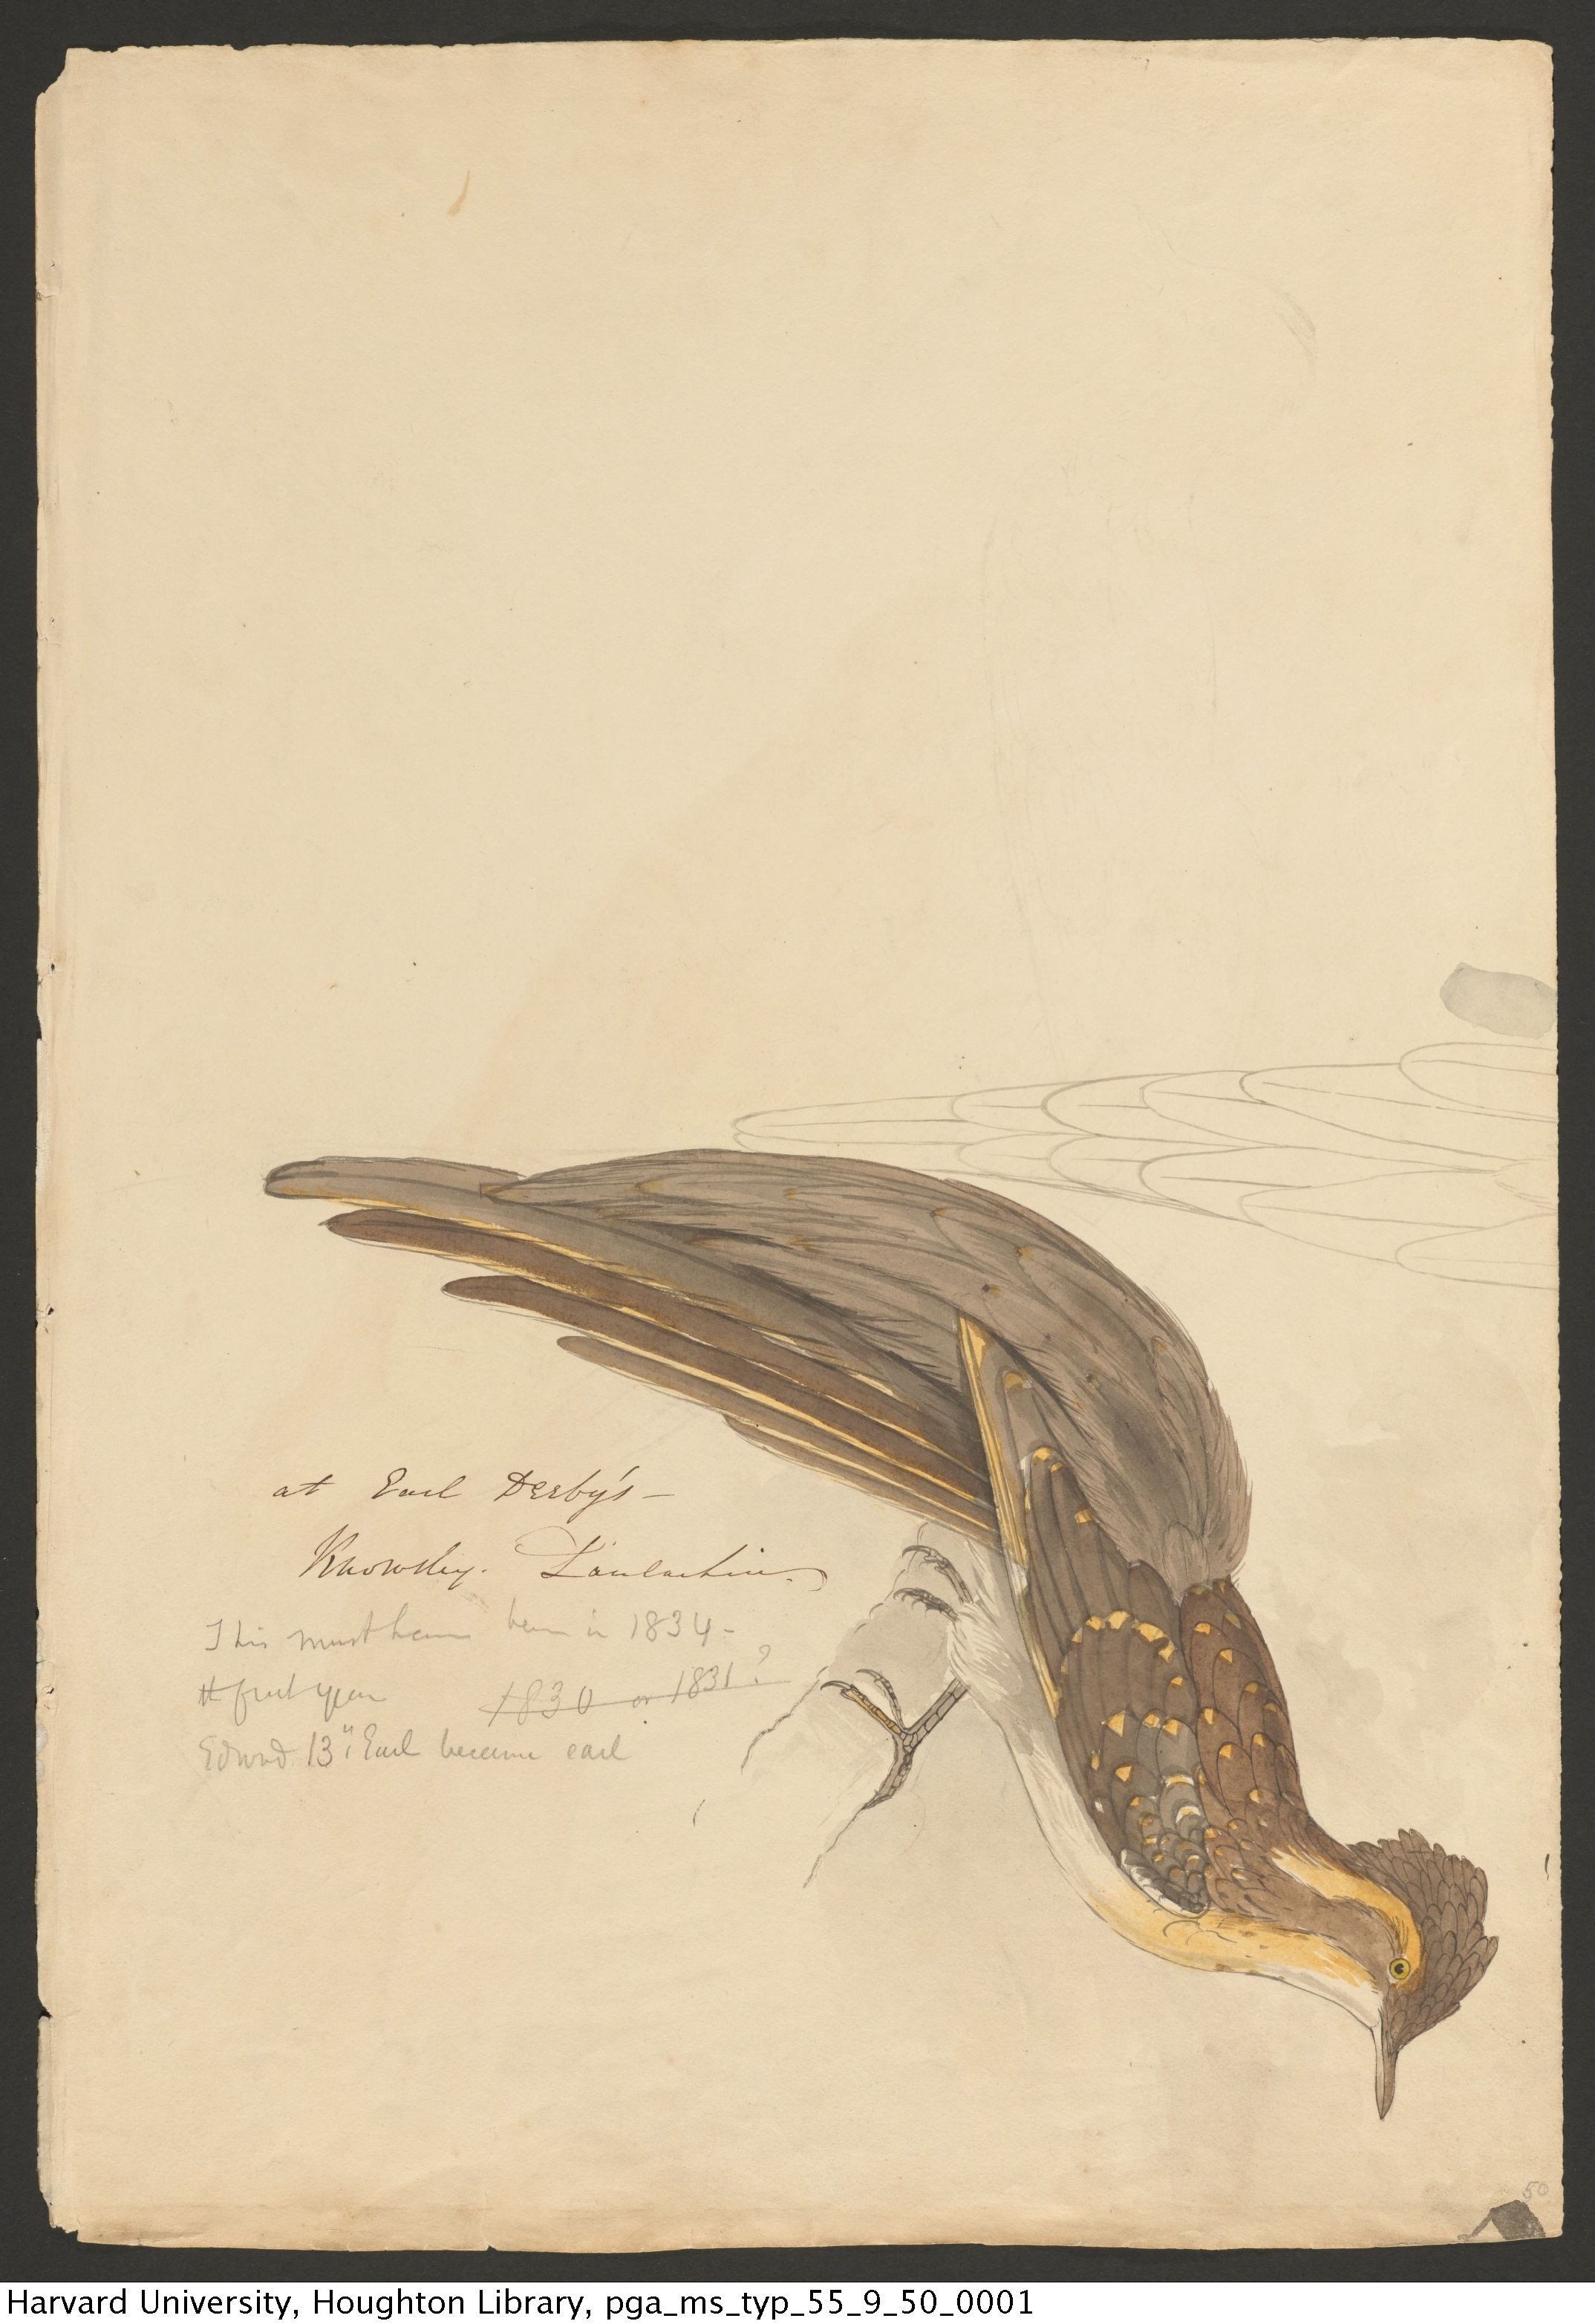 at Earl Derby's —
Knowsley. Lancashire.
This must have been in 1834 –
the first year 1830 or 1831?
Edward 13th Earl became earl
50
Harvard University, Houghton Library, pga_ms_typ_55_9_50_0001